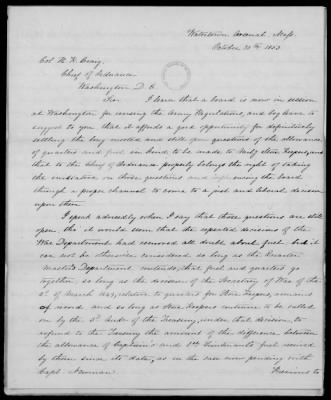 Watertown Arsenal, Mass.
October 20th 1853
Col. H. K. Craig,
Chief of Ordnance
Washington D. C.
Sir I learn that a board is now in session
at Washington for revising the Army Regulations, and beg leave to
suggest to you that it affords a good opportunity for definitively
settling the long mooted and still open questions of the allowance
of quarters and fuel on board to be made to Mily Store Keepers, and
that to the Chief of Ordnance properly belongs the right of taking
the initiative on those questions and the board
through a proper channel to come to a just and liberal decision
upon them.
I speak advisedly when I say that those questions are still
open, tho' it would seem that the repeated decisions of the
War Department had removed all doubt about fuel but it
can not be otherwise considered so long as the Quarter
Master's Department contends, that fuel and quarters go
together, so long as the decision of the Secretary of War of the
2d of March 1843, relative to quarters for Store Keepers, remains
of record and so long as Store Keepers continue to be called
on by the 3d Auditor of the Treasury, under that decision, to
refund to the Treasury the amount of the difference between
the allowance of Captain's and 2nd Lieutenants fuel received
by them since its date, as in the case now pending with
Capt. Newman.
Previous to